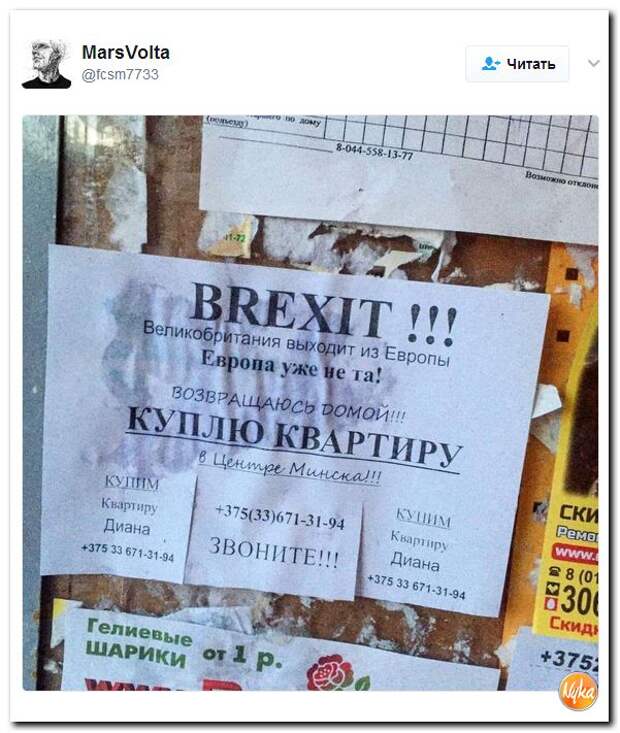 MarsVolta
@fcsm7733
Читать
по дому
(подъезду)
8-044-558-13-77
Возможно отклон
11-72
BREXIT !!!
Великобритания выходит из Европы
Европа уже не та!
ВОЗВРАЩАЮСЬ ДОМОЙ!!!
КУПЛЮ КВАРТИРУ
в Центре Минска!!!
КУПИМ
Квартиру
Диана
+375 33 671-31-94
+375(33)671-31-94
ЗВОНИТЕ!!!
КУПИМ
Квартиру
Диана
+375 33 671-31-94
СКИ
Ремо
www.
8 (01
306
Скид
+375
Гелиевые
ШАРИКИ от 1 р.
www.
Nyka